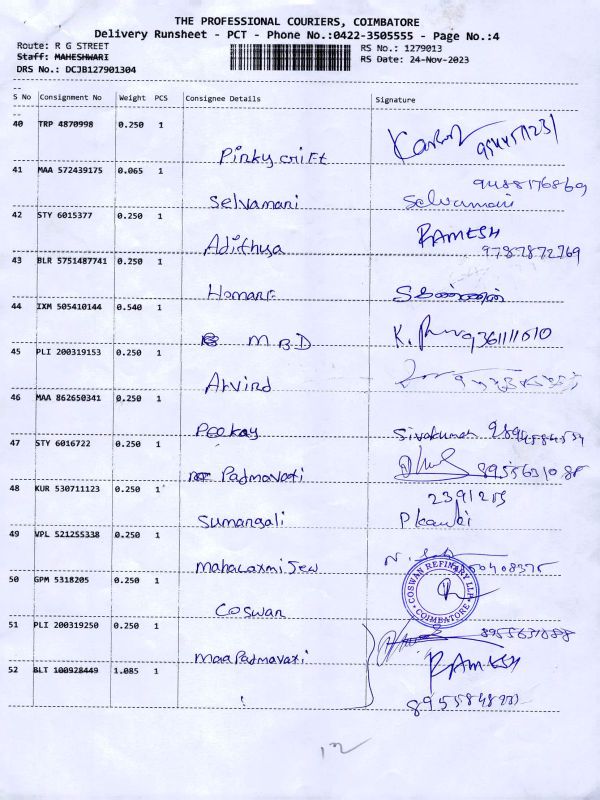 THE PROFESSIONAL COURIERS, COIMBATORE
Delivery Runsheet - PCT - Phone No.:0422-3505555 - Page No.:4
Route: R G STREET RS No.: 1279013
Staff: MAHESHWARI RS Date: 24-Nov-2023
DRS No.: DCJB127901304
S No Consignment No Weight PCS Consignee Details Signature
40 TRP 4870998 0.250 1
Pinky crift
41 MAA 572439175 0.065 1
9488176869
Selvamani Selvamani
42 STY 6015377 0.250 1
RAMESH
Adithya 9787872769
43 BLR 5751487741 0.250 1
44 IXM 505410144 0.540 1
M B D K. 9361111510
45 PLI 200319153 0.250 1
Arvind
46 MAA 862650341 0.250 1
Peekay Sivakumar
47 STY 6016722 0.250 1
Padmavati
48 KUR 530711123 0.250 1
2391215
Sumangali
49 VPL 521255338 0.250 1
Mahalaxmi Jew
50 GPM 5318205 0.250 1
COSWAN REFINARY LLP
COIMBATORE
Coswan
51 PLI 200319250 0.250 1
8955631088
Maa Padmavati
52 BLT 100928449 1.085 1
RAMESH
12